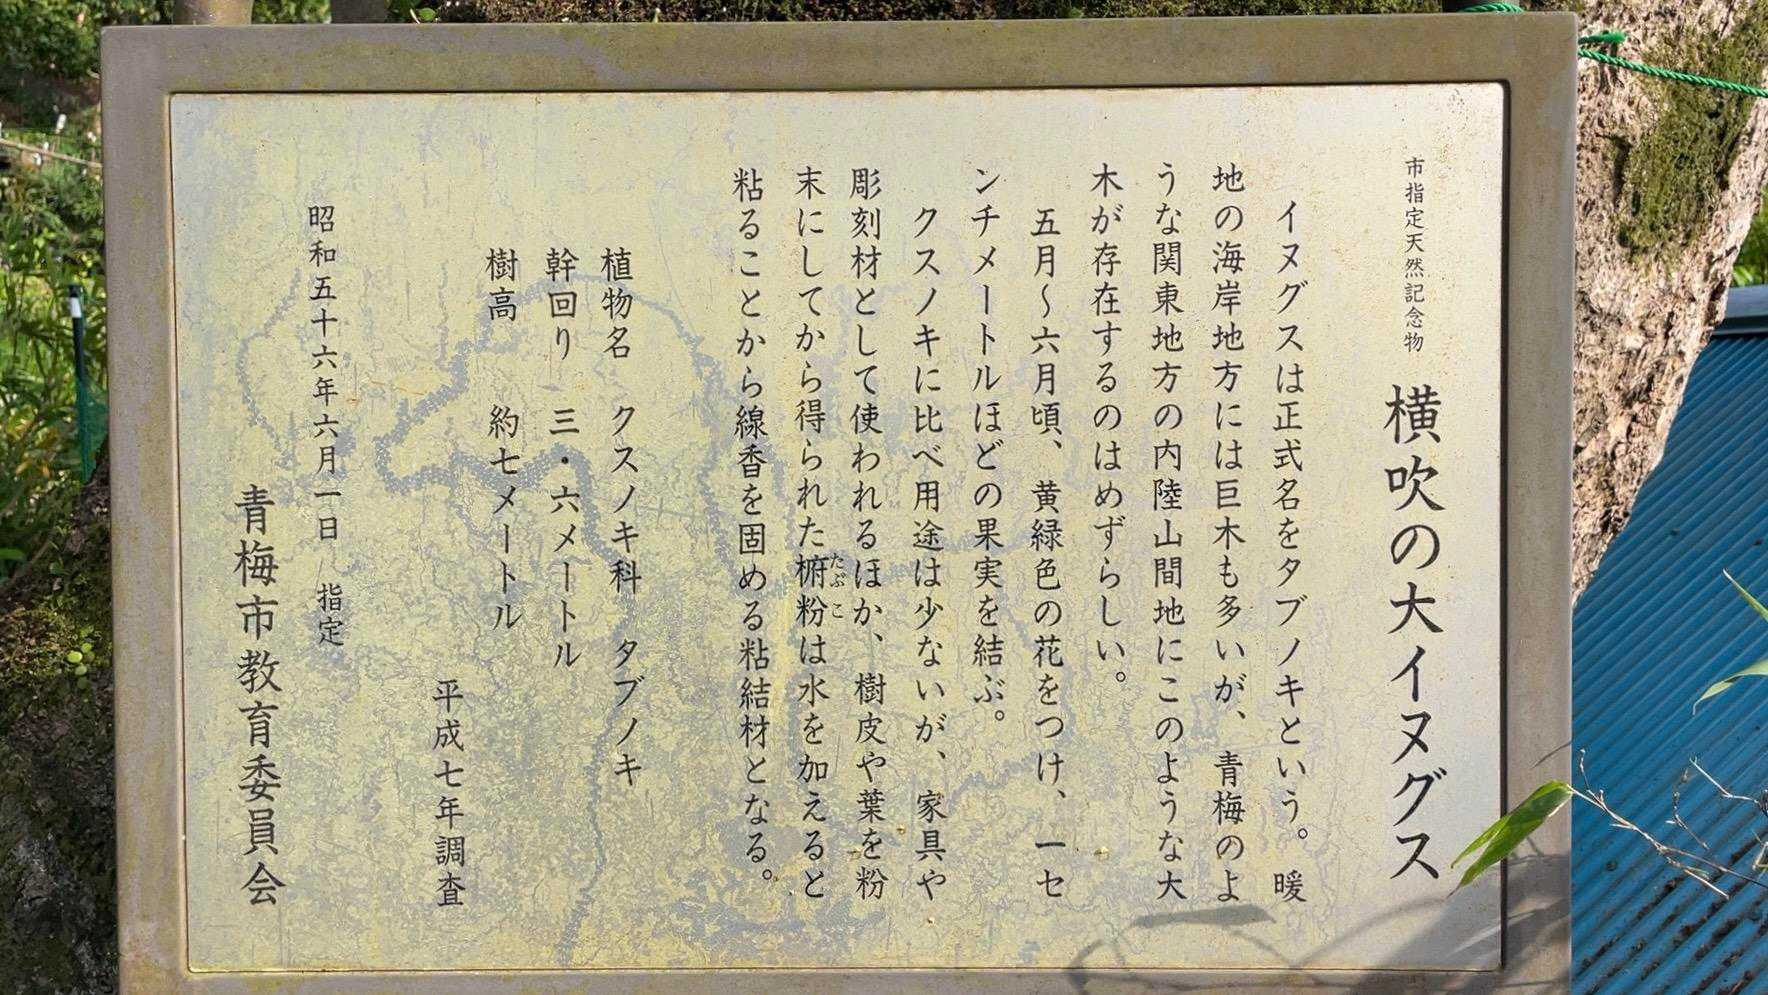 市指定天然記念物 横吹の大イヌグス
イヌグスは正式名をタブノキという。暖
地の海岸地方には巨木も多いが、青梅のよ
うな関東地方の内陸山間地にこのような大
木が存在するのはめずらしい。
五月〜六月頃、黄緑色の花をつけ、一セ
ンチメートルほどの果実を結ぶ。
クスノキに比べ用途は少ないが、家具や
彫刻材として使われるほか、樹皮や葉を粉
たぶこ
末にしてから得られた椨粉は水を加えると
粘ることから線香を固める粘結材となる。
植物名 クスノキ科 タブノキ
幹回り 三・六メートル
樹高 約七メートル
平成七年調査
昭和五十六年六月一日 指定
青梅市教育委員会